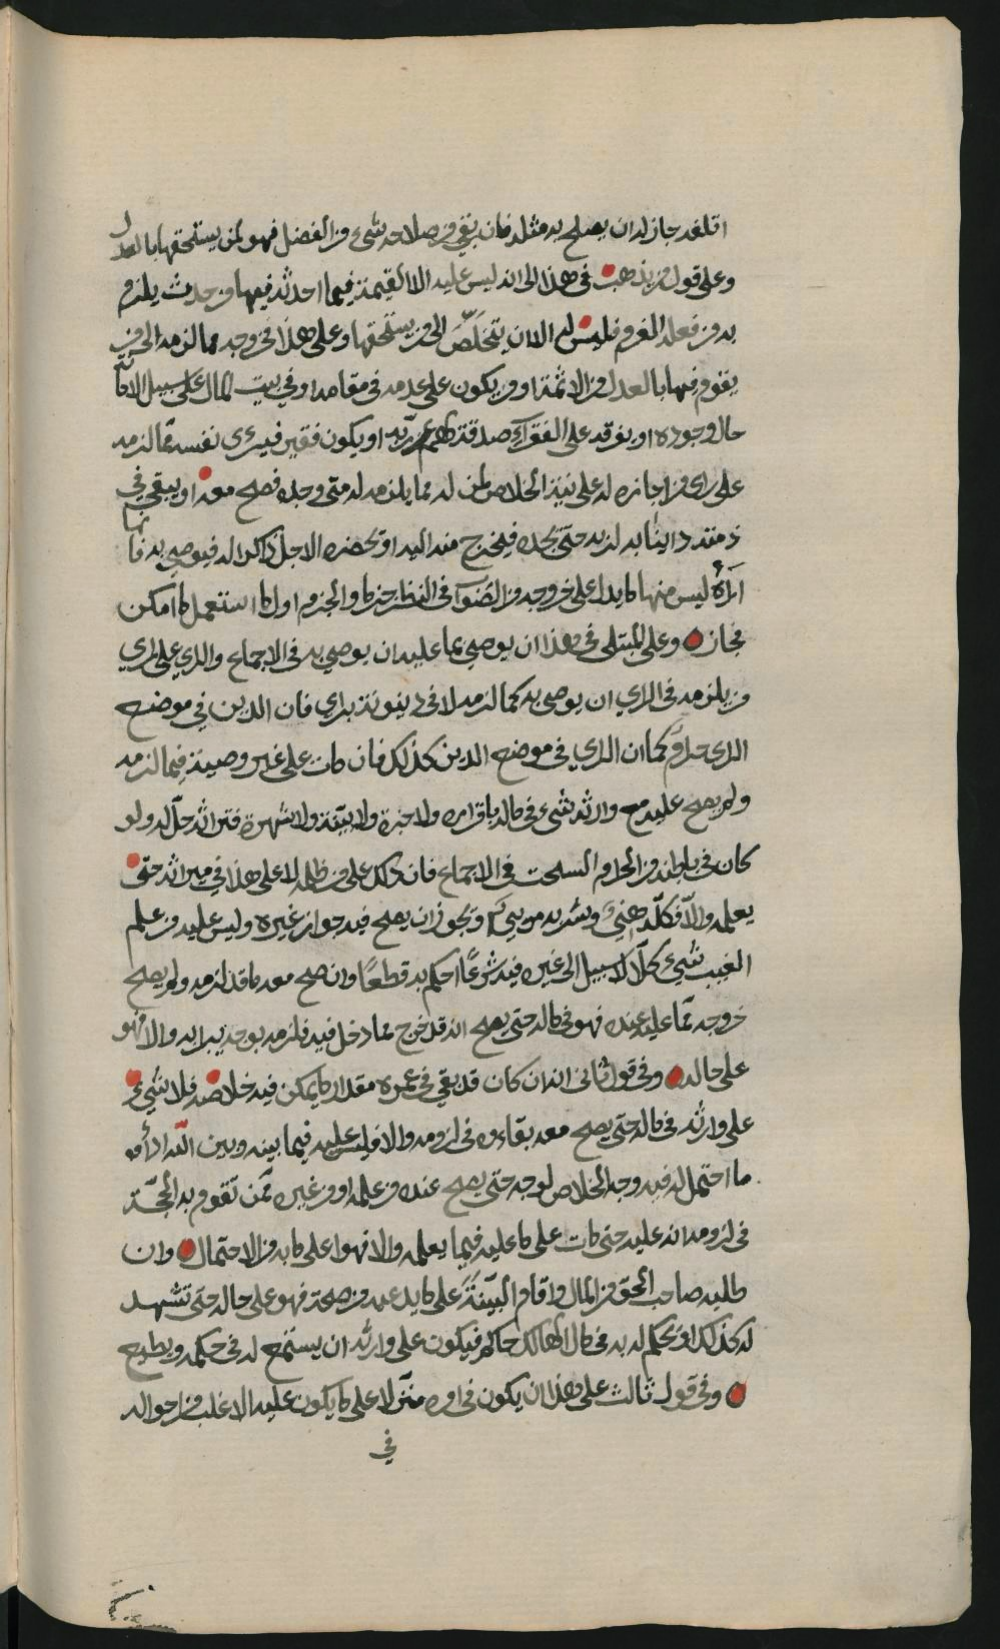 اتلفه جاز له ان يصلح به مثله فان بقي من صلاحه شيء من الفضل فهو لمن يستحقها بالعدل
وعلى قول من يذهب في هذا الى انه ليس عليه الا القيمة فيما احدثه فيها من حدث يلزم
به من فعله الغرم فليس له الا ان يتخلّص الى من يستحقها وعلى هذا في وجه مما لزمه الى من
يقوم فيها بالعدل من الائمة او من يكون على عدمه في مقامه او في بيت المال على سبيل الامانة
حال وجوده او يفرقه على الفقراء صدقة لهم عن ربه او يكون فقير فيبرئ نفسه مما لزمه
على راي من اجازه له على نية الخلاص لمن له مما يلزمه له متى وجده فصح معه او يبقى في
ذمته داينا به لربه حتى يجده فيخرج منه اليه او يحضره الاجل ذاكرا له فيوصي به فانها
آراءٌ ليس منها ما يدل على خروجه من الصواب في النظر حزما والحزم اولى ما استعمل ما امكن
فجاز وعلى المبتلى في هذا ان يوصي بما عليه ان يوصي به في الاجماع والذي على الراي
من يلزمه في الراي ان يوصي به كما لزمه لا في دينونة براي فان الدين في موضع
الراي حرام كما ان الراي في موضع الدين كذلك فان مات على غير وصية فيما لزمه
ولم يصح عليه مع وارثه شيء في ماله باقراره ولا خبرة ولا بيّنة ولا شهرة فتراثه حلّ له ولو
كان في باطنه من الحرام السحت في الاجماع فان ذلك على من ظلمه لا على هذا في ميراثه حتى
يعلمه والّا فكلّه هنيءٌ وشربه مريءٌ ويجوز ان يصح فيه جواز غيره وليس عليه من علم
الغيب شيء كلّا لا سبيل الى غيره فيه شرعًا احكم به قطعًا وان صح معه ما قد لزمه ولم يصح
خروجه مما عليه عنده فهو في ماله حتى يصح انه قد خرج مما دخل فيه فلزمه بوجه يبرا به والا فهو
على حاله وفي قول ثاني انه ان كان قد بقي في عمره مقدار ما يمكن فيه خلاصه فلا شيء
على وارثه في ماله حتى يصح معه بقاءوه في لزومه والا فليس عليه فيما بينه وبين الله اداءه
ما احتمل له فيه وجه الخلاص لوجه حتى يصح عنده من علمه او من غيره ممن تقوم به الحجّة
في لزومه انه عليه حتى مات على ما عليه فيما يعلمه والا فهوا على ما به من الاحتمال وان
طلبه صاحب الحق من المال واقام البيّنةَ على ما يدعيه من صحة فهو على حاله حتى تشهد
له كذلك او يحكم له به في مال الهالك حاكم فيكون على وارثه ان يستمع له في حكمه ويطيع
وفي قول ثالث على هذا ان يكون في امره منزلا على ما يكون عليه الاغلب من احواله
في